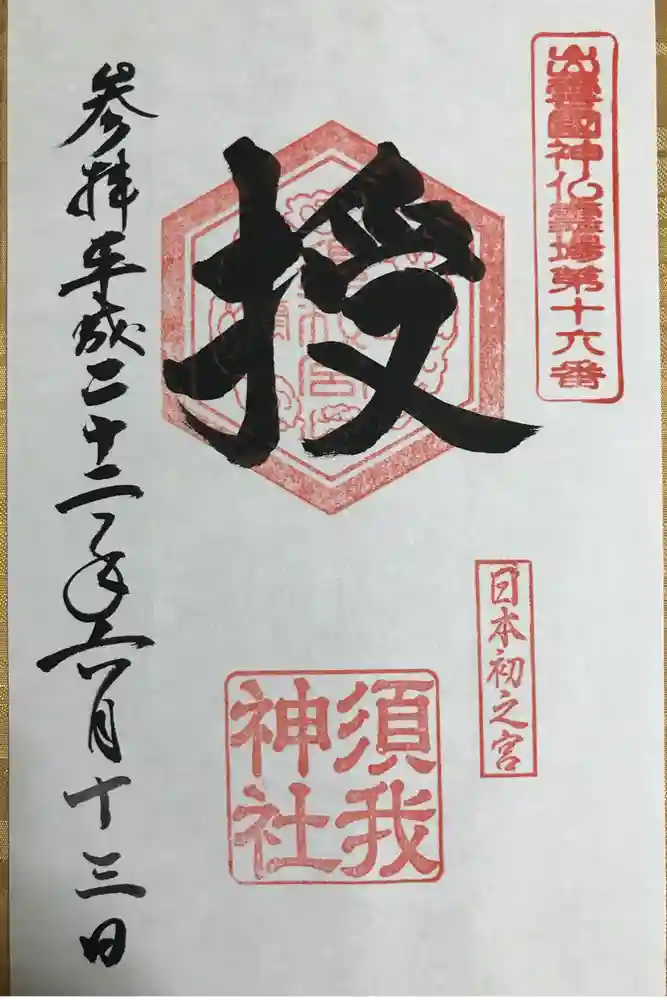 出雲國神仏霊場第十六番
授
日本初之宮
須我
神社
参拝平成二十二年六月十三日